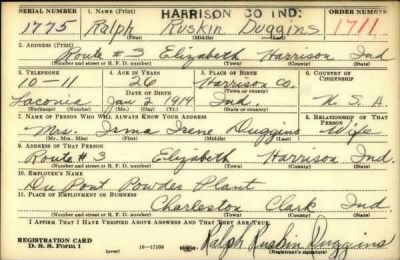 HARRISON CO IND:
SERIAL NUMBER 1. NAME (Print) ORDER NUMBER
1775 Ralph Ruskin Duggins 1711
(First) (Middle) (Last)
2. ADDRESS (Print)
Route #3 Elizabeth Harrison Ind
(Number and street or R. F. D. number) (Town) (County) (State)
3. TELEPHONE 4. AGE IN YEARS 5. PLACE OF BIRTH 6. COUNTRY OF CITIZENSHIP
10-11 26 Harrison Co.
DATE OF BIRTH (Town or county)
Laconia Jan 2 1914 Ind. U. S. A
(Exchange) (Number) (Mo.) (Day) (Yr.) (State or country)
7. NAME OF PERSON WHO WILL ALWAYS KNOW YOUR ADDRESS 8. RELATIONSHIP OF THAT PERSON
Mrs. Irma Irene Duggins Wife
(Mr., Mrs., Miss) (First) (Middle) (Last)
9. ADDRESS OF THAT PERSON
Route #3 Elizabeth Harrison Ind.
(Number and street or R. F. D. number) (Town) (County) (State)
10. EMPLOYER'S NAME
Du Pont Powder Plant
11. PLACE OF EMPLOYMENT OR BUSINESS
Charleston Clark Ind
(Number and street or R. F. D. number) (Town) (County) (State)
I AFFIRM THAT I HAVE VERIFIED ABOVE ANSWERS AND THAT THEY ARE TRUE.
REGISTRATION CARD
D. S. S. Form 1 Ralph Ruskin Duggins
(Registrant's signature)